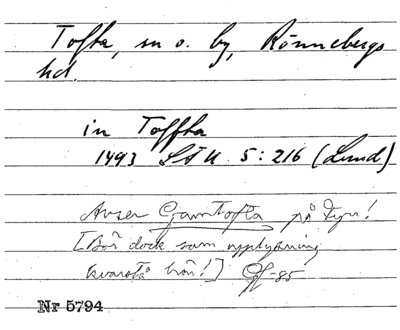 Tofta, sn o. by, Rönnebergs
hd.
in Toffta
1493 LÄU 5:216 (Lund)
Avser Gamtofta på Fyn!
[Bör dock som upplysning
kvarstå här!] GH-85
Nr 5794